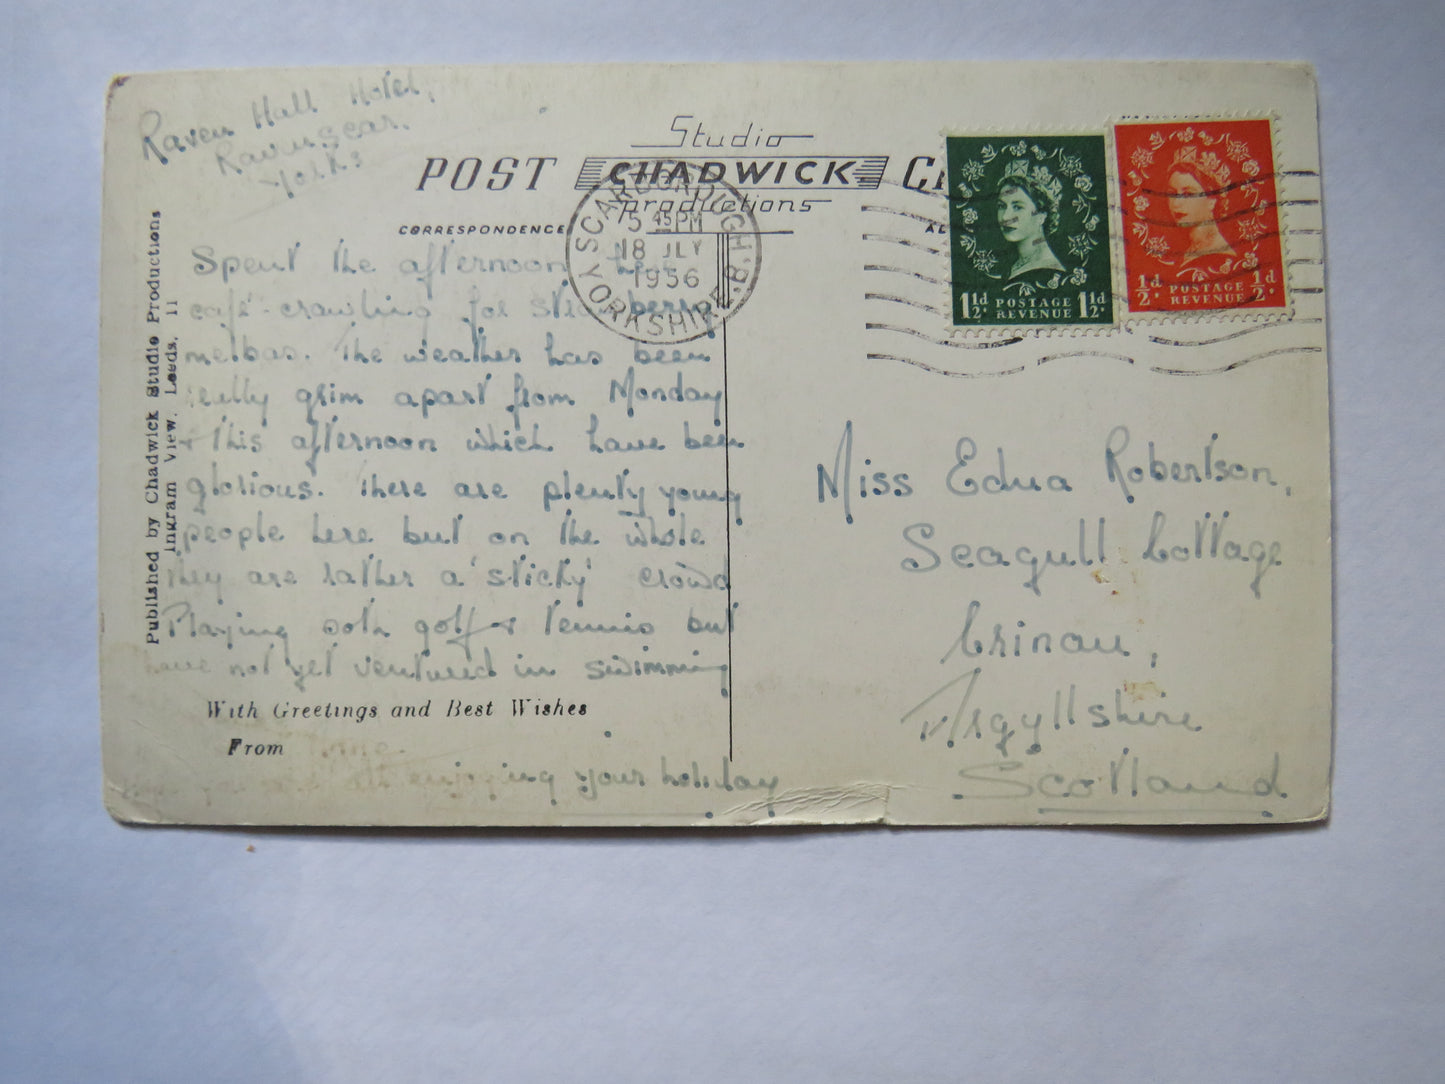 Raven Hall Hotel,
Ravenscar.
Yorks
Studio
POST CHADWICK
productions
CORRESPONDENCE
SCARBOROUGH 'B'
5 45 PM
18 JLY
1956
YORKSHIRE
1½d POSTAGE REVENUE 1½d
½d POSTAGE REVENUE ½d
Published by Chadwick Studio Productions
Ingram View. Leeds. 11
Spent the afternoon here
café-crawling for strawberry
melbas. The weather has been
really grim apart from Monday
& this afternoon which have been
glorious. There are plenty young
people here but on the whole
they are rather a 'sticky' crowd
Playing both golf & tennis but
have not yet ventured in swimming
With Greetings and Best Wishes
From
enjoying your holiday
Miss Edna Robertson,
Seagull Cottage
Crinan,
Argyllshire
Scotland